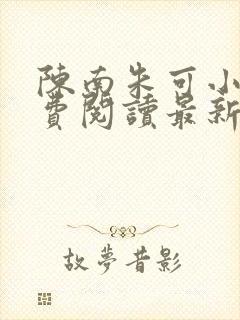 陳南朱可小
費閱讀最新
故夢昔影